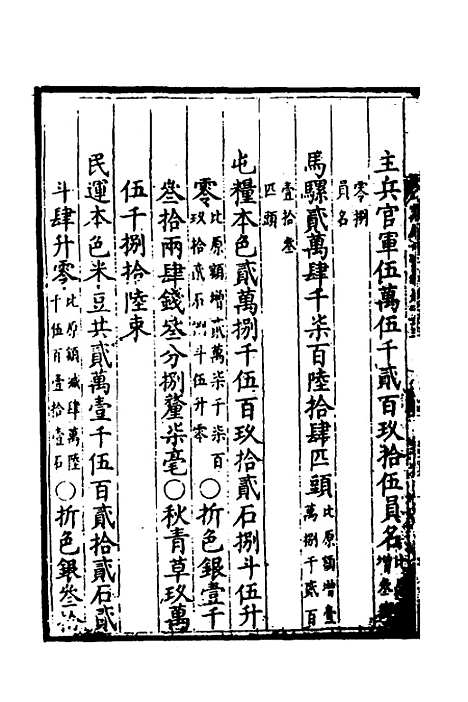 主兵官軍伍萬伍千貳百玖拾伍員名比增叁
零捌員名
馬騾貳萬肆千柒百陸拾肆匹頭比原額增壹萬捌千貳百
壹拾叁匹頭
屯糧本色貳萬捌千伍百玖拾貳石捌斗伍升
零比原額增貳萬柒千柒百玖拾貳石斗伍升零○折色銀壹千
叁拾兩肆錢叁分捌釐柒毫○秋青草玖萬
伍千捌拾陸束
民運本色米豆共貳萬壹千伍百貳拾貳石貳
斗肆升零比原額減肆萬陸千伍百壹拾壹石○折色銀叁拾